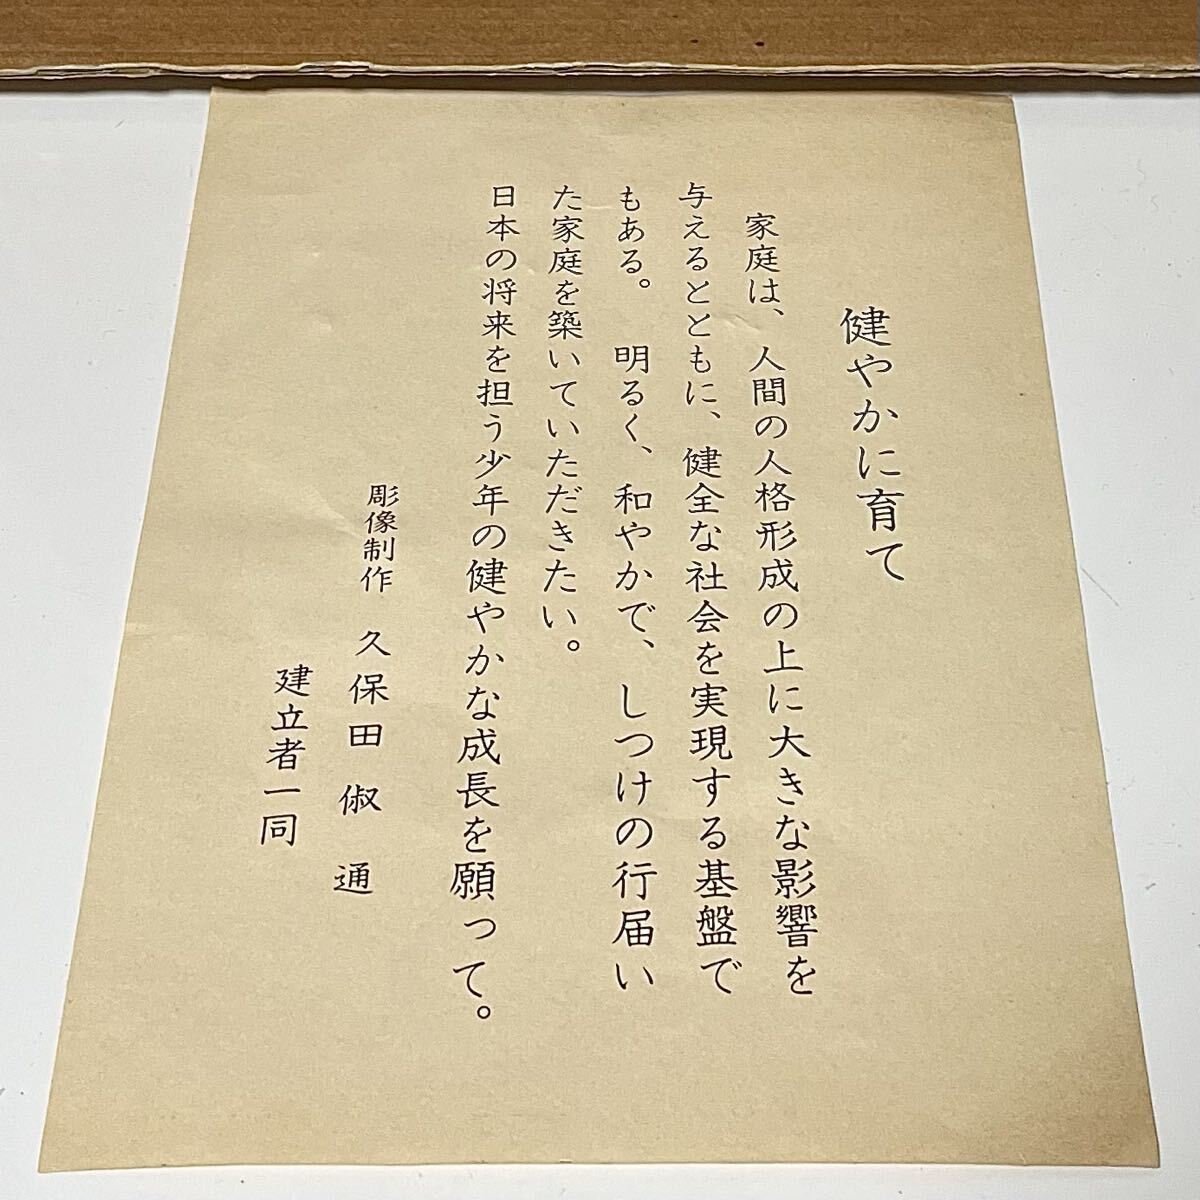 健やかに育て
家庭は、人間の人格形成の上に大きな影響を
与えるとともに、健全な社会を実現する基盤で
もある。 明るく、和やかで、しつけの行届い
た家庭を築いていただきたい。
日本の将来を担う少年の健やかな成長を願って。
彫像制作 久保田 俶 通
建立者一同